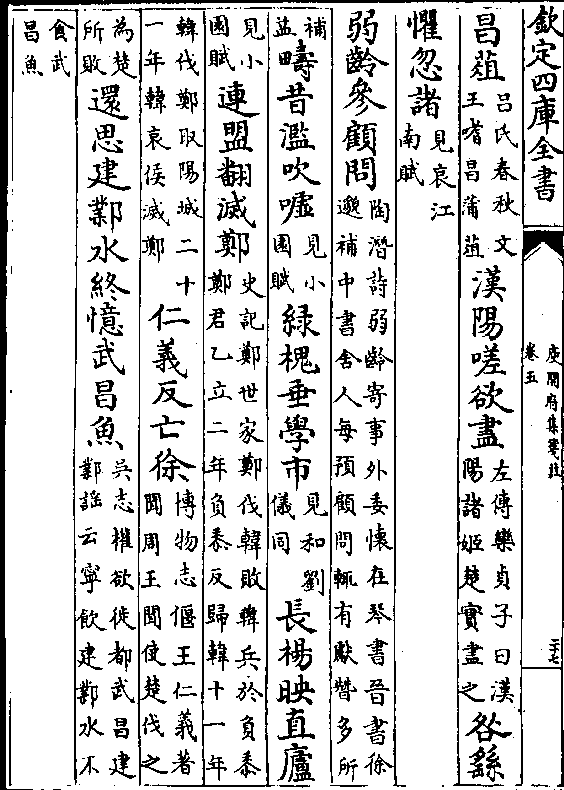 欽定四庫全書
庾開府集箋註
卷五
二十七
昌蒩
呂氏春秋文
王嗜昌蒲蒩
漢陽嗟欲盡
左傳欒貞子曰漢
陽諸姬楚實盡之
咎繇
懼忽諸
見哀江
南賦
弱齡參顧問
陶潛詩弱齡寄事外委懷在琴書晉書徐
邈補中書舍人每預顧問輒有獻贊多所
補
益
疇昔濫吹噓
見小
園賦
緑槐垂學市
見和劉
儀同
長楊映直廬
見小
園賦
連盟翻滅鄭
史記鄭世家鄭伐韓敗韓兵於負黍
鄭君乙立二年負黍反歸韓十一年
韓伐鄭取陽城二十
一年韓哀侯滅鄭
仁義反亡徐
博物志偃王仁義著
聞周王聞使楚伐之
為楚
所敗
還思建鄴水終憶武昌魚
吳志權欲徙都武昌建
鄴謡云寧飲建鄴水不
食武
昌魚